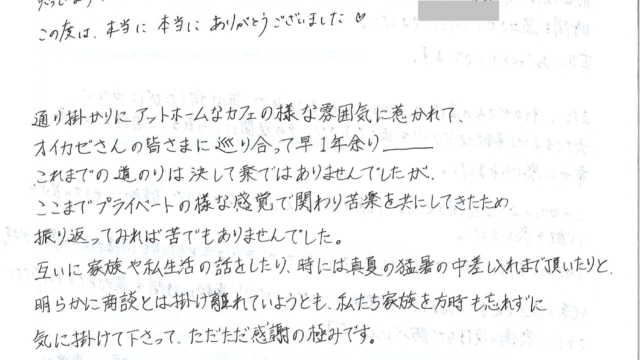 この度は、本当に本当にありがとうございました♡
通り掛かりにアットホームなカフェの様な雰囲気に惹かれて、
オイカゼさんの皆さまに巡り合って早1年余り______
これまでの道のりは決して楽ではありませんでしたが、
ここまでプライベートの様な感覚で関わり苦楽を共にしてきたため、
振り返ってみれば苦でもありませんでした。
互いに家族や私生活の話をしたり、時には真夏の猛暑の中差し入れまで頂いたりと、
明らかに商談とは掛け離れていようとも、私たち家族を片時も忘れずに
気に掛けて下さって、ただただ感謝の極みです。